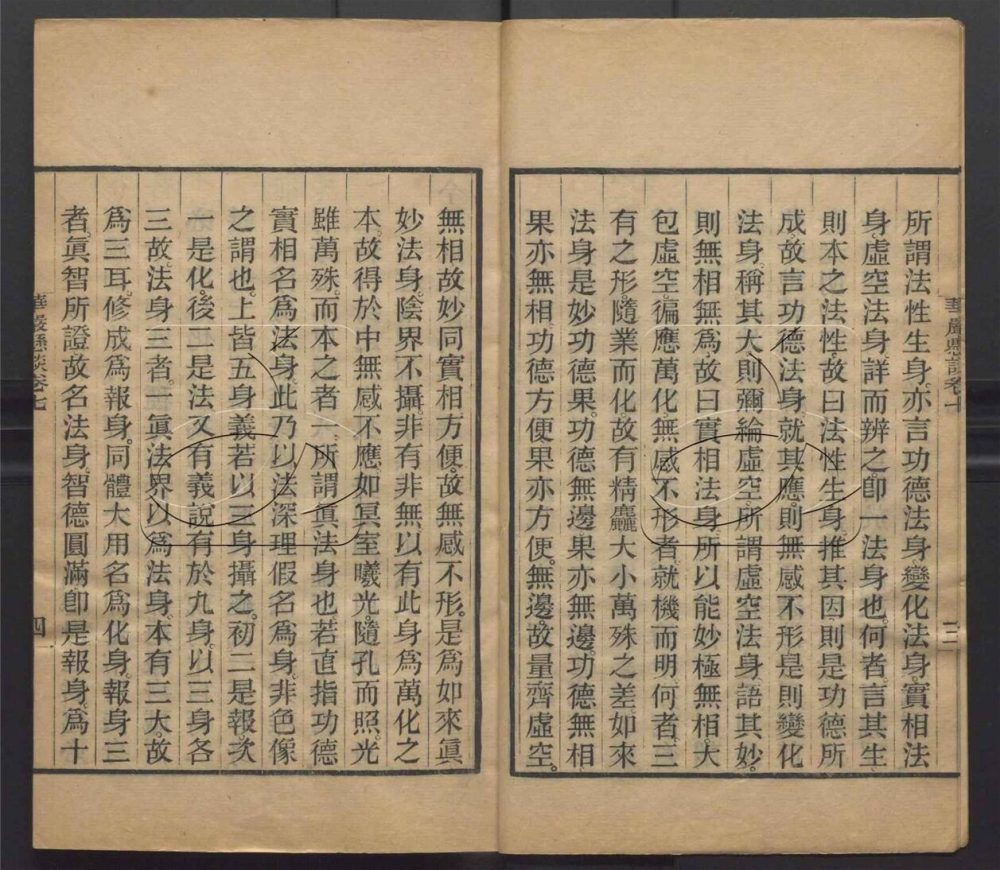 所謂法性生身亦言功德法身變化法身實相法
身虛空法身詳而辨之卽一法身也何者言其生
則本之法性故曰法性生身推其因則是功德所
成故言功德法身就其應則無感不形是則變化
法身稱其大則彌綸虛空所謂虛空法身語其妙
則無相無爲故曰實相法身所以能妙極無相大
包虛空徧應萬化無感不形者就機而明何者三
有之形隨業而化故有精麤大小萬殊之差如來
法身是妙功德果功德無邊果亦無邊功德無相
果亦無相功德方便果亦方便無邊故量齊虛空
無相故妙同實相方便故無感不形是爲如來眞
妙法身陰界不攝非有非無以有此身爲萬化之
本故得於中無感不應如冥室曦光隨孔而照光
雖萬殊而本之者一所謂眞法身也若直指功德
實相名爲法身此乃以法深理假名爲身非色像
之謂也上皆五身義若以三身攝之初二是報次
一是化後二是法又有義說有於九身以三身各
三故法身三者一眞法界以爲法身本有三大故
爲三耳修成爲報身同體大用名爲化身報身三
者眞智所證故名法身智德圓滿卽是報身爲十
華嚴懸談卷七
四